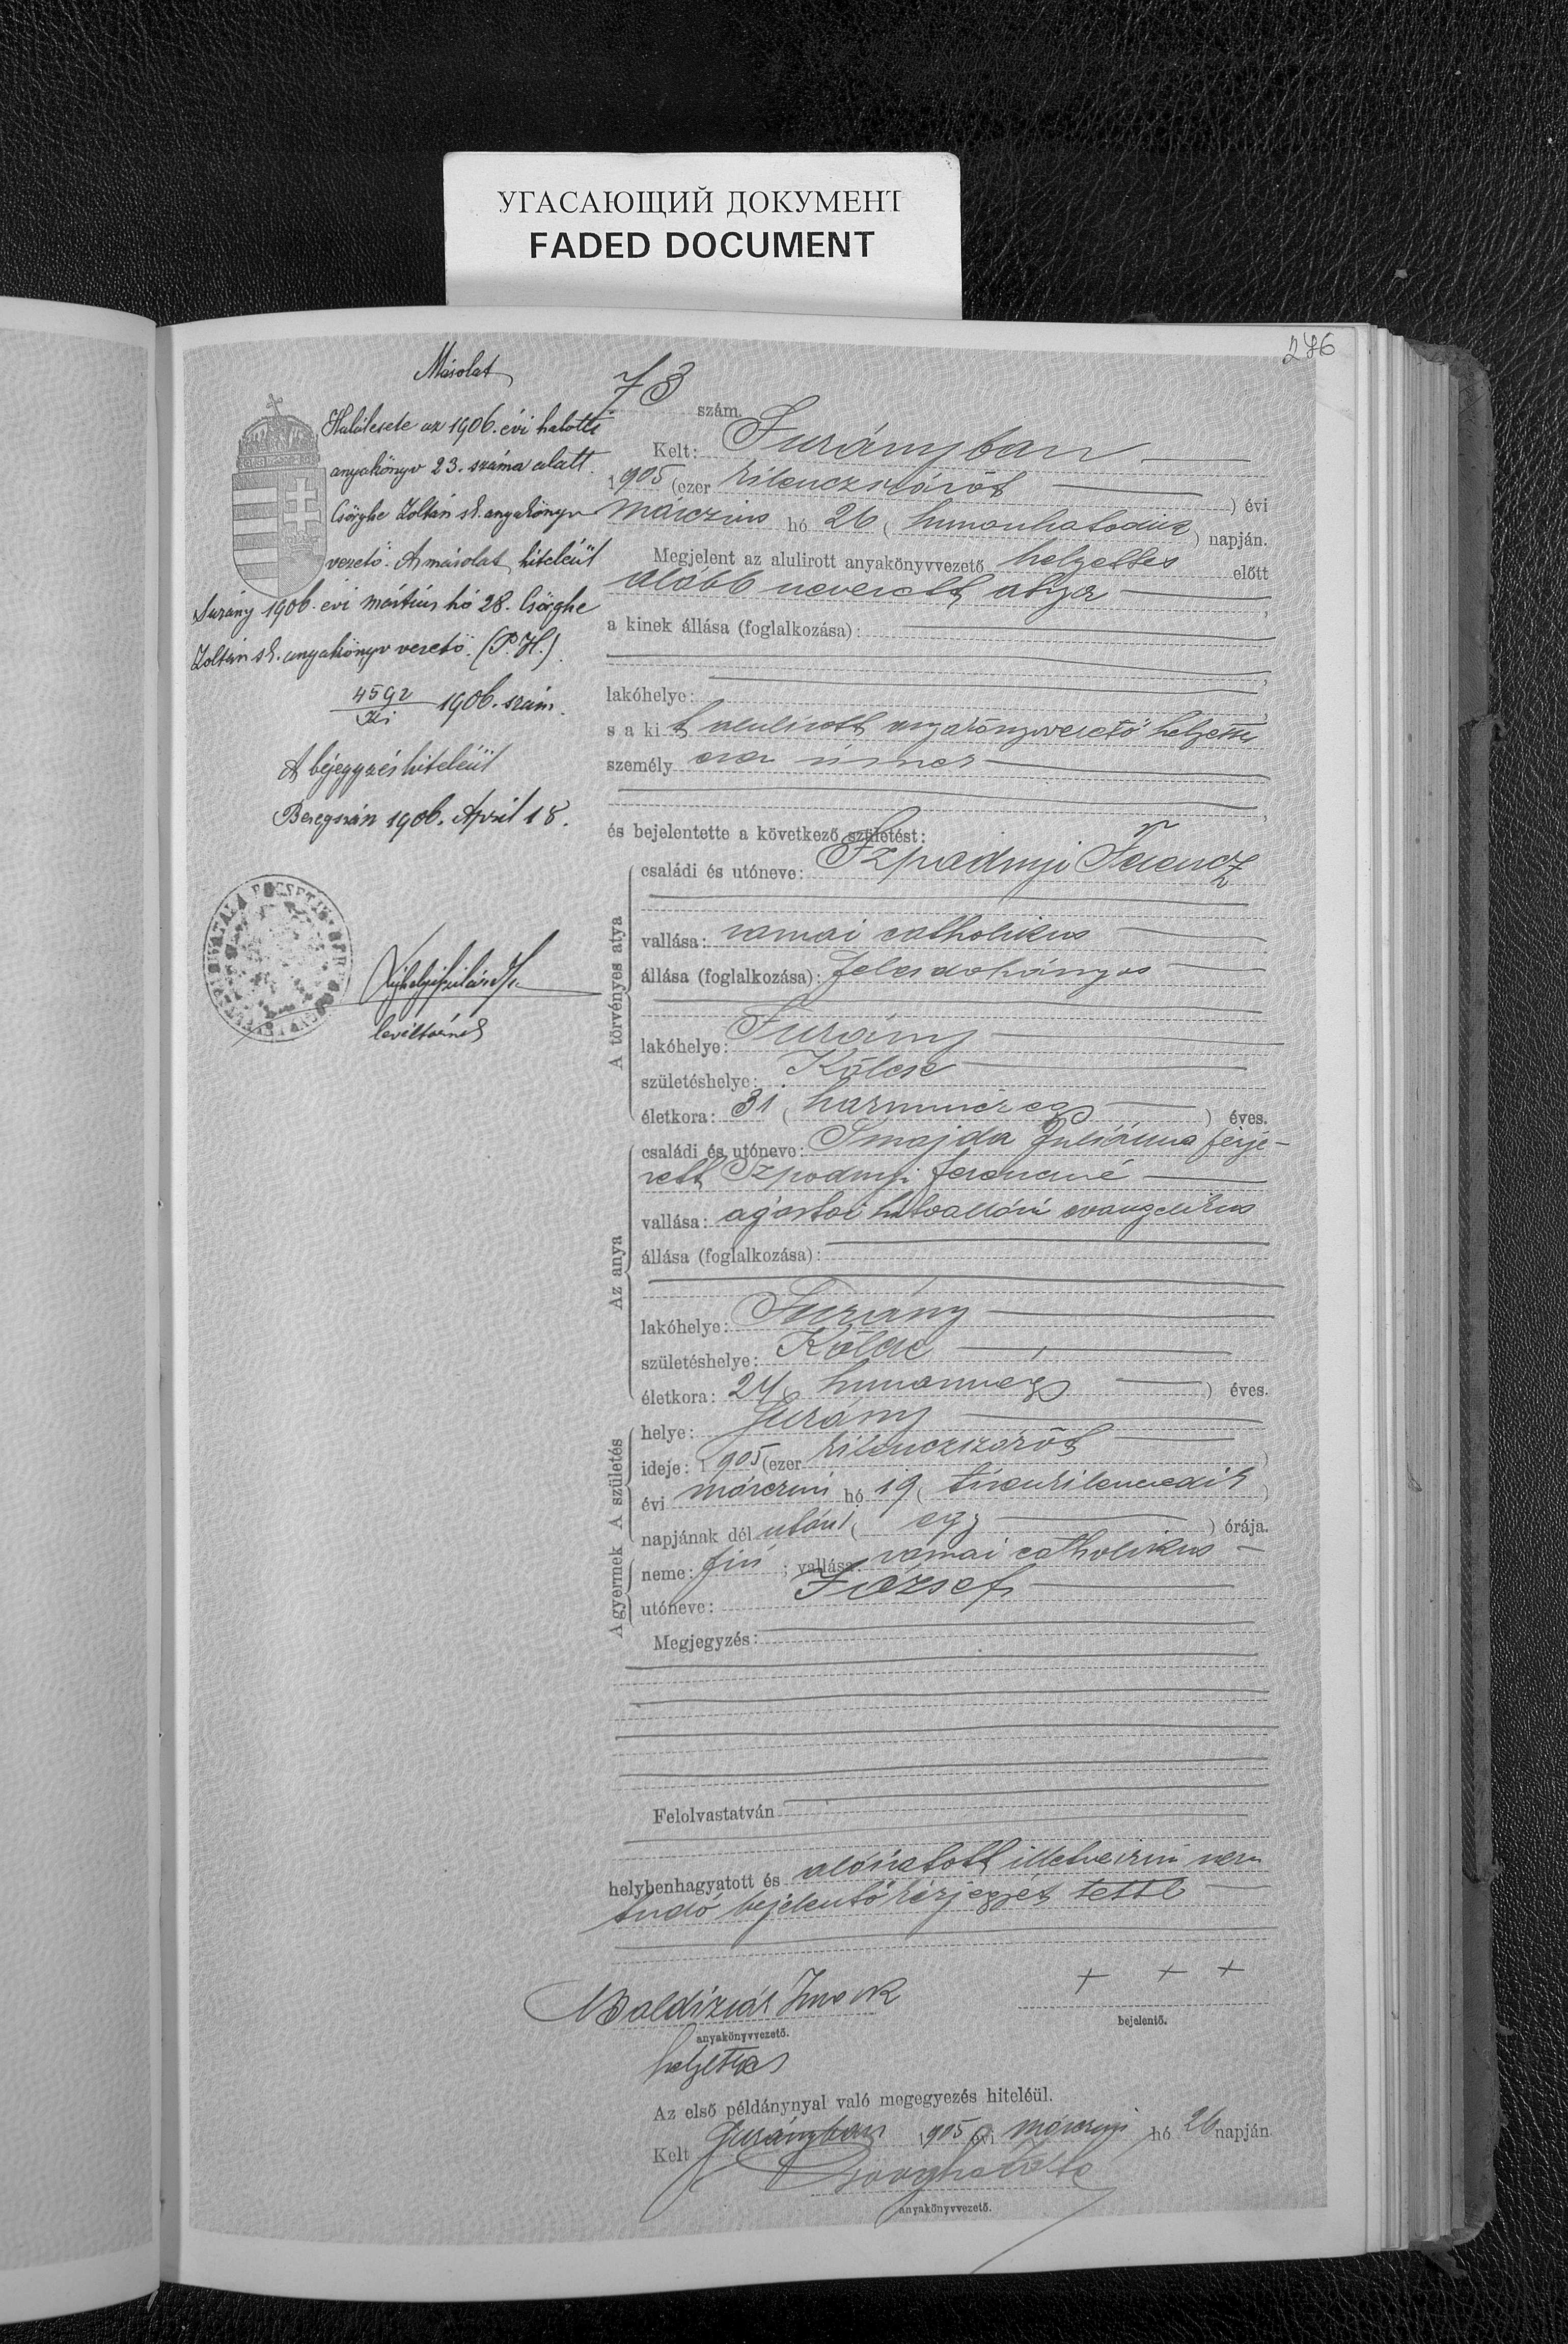 УГАСАЮЩИЙ ДОКУМЕНТ
FADED DOCUMENT
276
Másolat
Halálesete az 1906. évi halotti
anyakönyv 23. száma alatt.
Csörghe Zoltán sk. anyakönyv
vezető. A másolat hiteléül
Surány 1906. évi mártius hó 28. Csörghe
Zoltán sk. anyakönyv vezető. (P. H.)
4592/Ki 1906. szám.
A bejegyzés hiteléül
Beregszász 1906. April 18.
levéltárnok
73 szám.
Kelt: Surányban
1905 (ezer kilenczszázöt ) évi
márczius hó 26 ( huszonhatodik ) napján.
Megjelent az alulirott anyakönyvvezető helyettes előtt
alább nevezett atya ,
a kinek állása (foglalkozása):
lakóhelye:
s a kit alulirott anyakönyvvezető helyettes
személy esen ismer
és bejelentette a következő születést:
A törvényes atya
családi és utóneve: Szpodnyi Ferencz
vallása: római catholikus
állása (foglalkozása): feles dohányos
lakóhelye: Surány
születéshelye: Kölcse
életkora: 31 ( harminczegy ) éves.
Az anya
családi és utóneve: Smajda Juliánna férje-
zett Szpodnyi Ferenczné
vallása: ágostai hitvallású evangelikus
állása (foglalkozása):
lakóhelye: Surány
születéshelye: Kölcse
életkora: 24 ( huszonnégy ) éves.
A születés
helye: Surány
ideje: 1905 (ezer kilenczszázöt )
évi márczius hó 19 ( tizenkilenczedik )
napjának dél utáni ( egy ) órája.
A gyermek
neme: fiú ; vallása: római catholikus
utóneve: József
Megjegyzés:
Felolvastatván
helybenhagyatott és aláiratott illetve irni nem
tudó bejelentő kézjegyét tette
+ + +
anyakönyvvezető.
bejelentő.
helyettes
Az első példánynyal való megegyezés hiteléül.
Kelt Surányban 1905 évi márczius hó 26 napján
anyakönyvvezető.